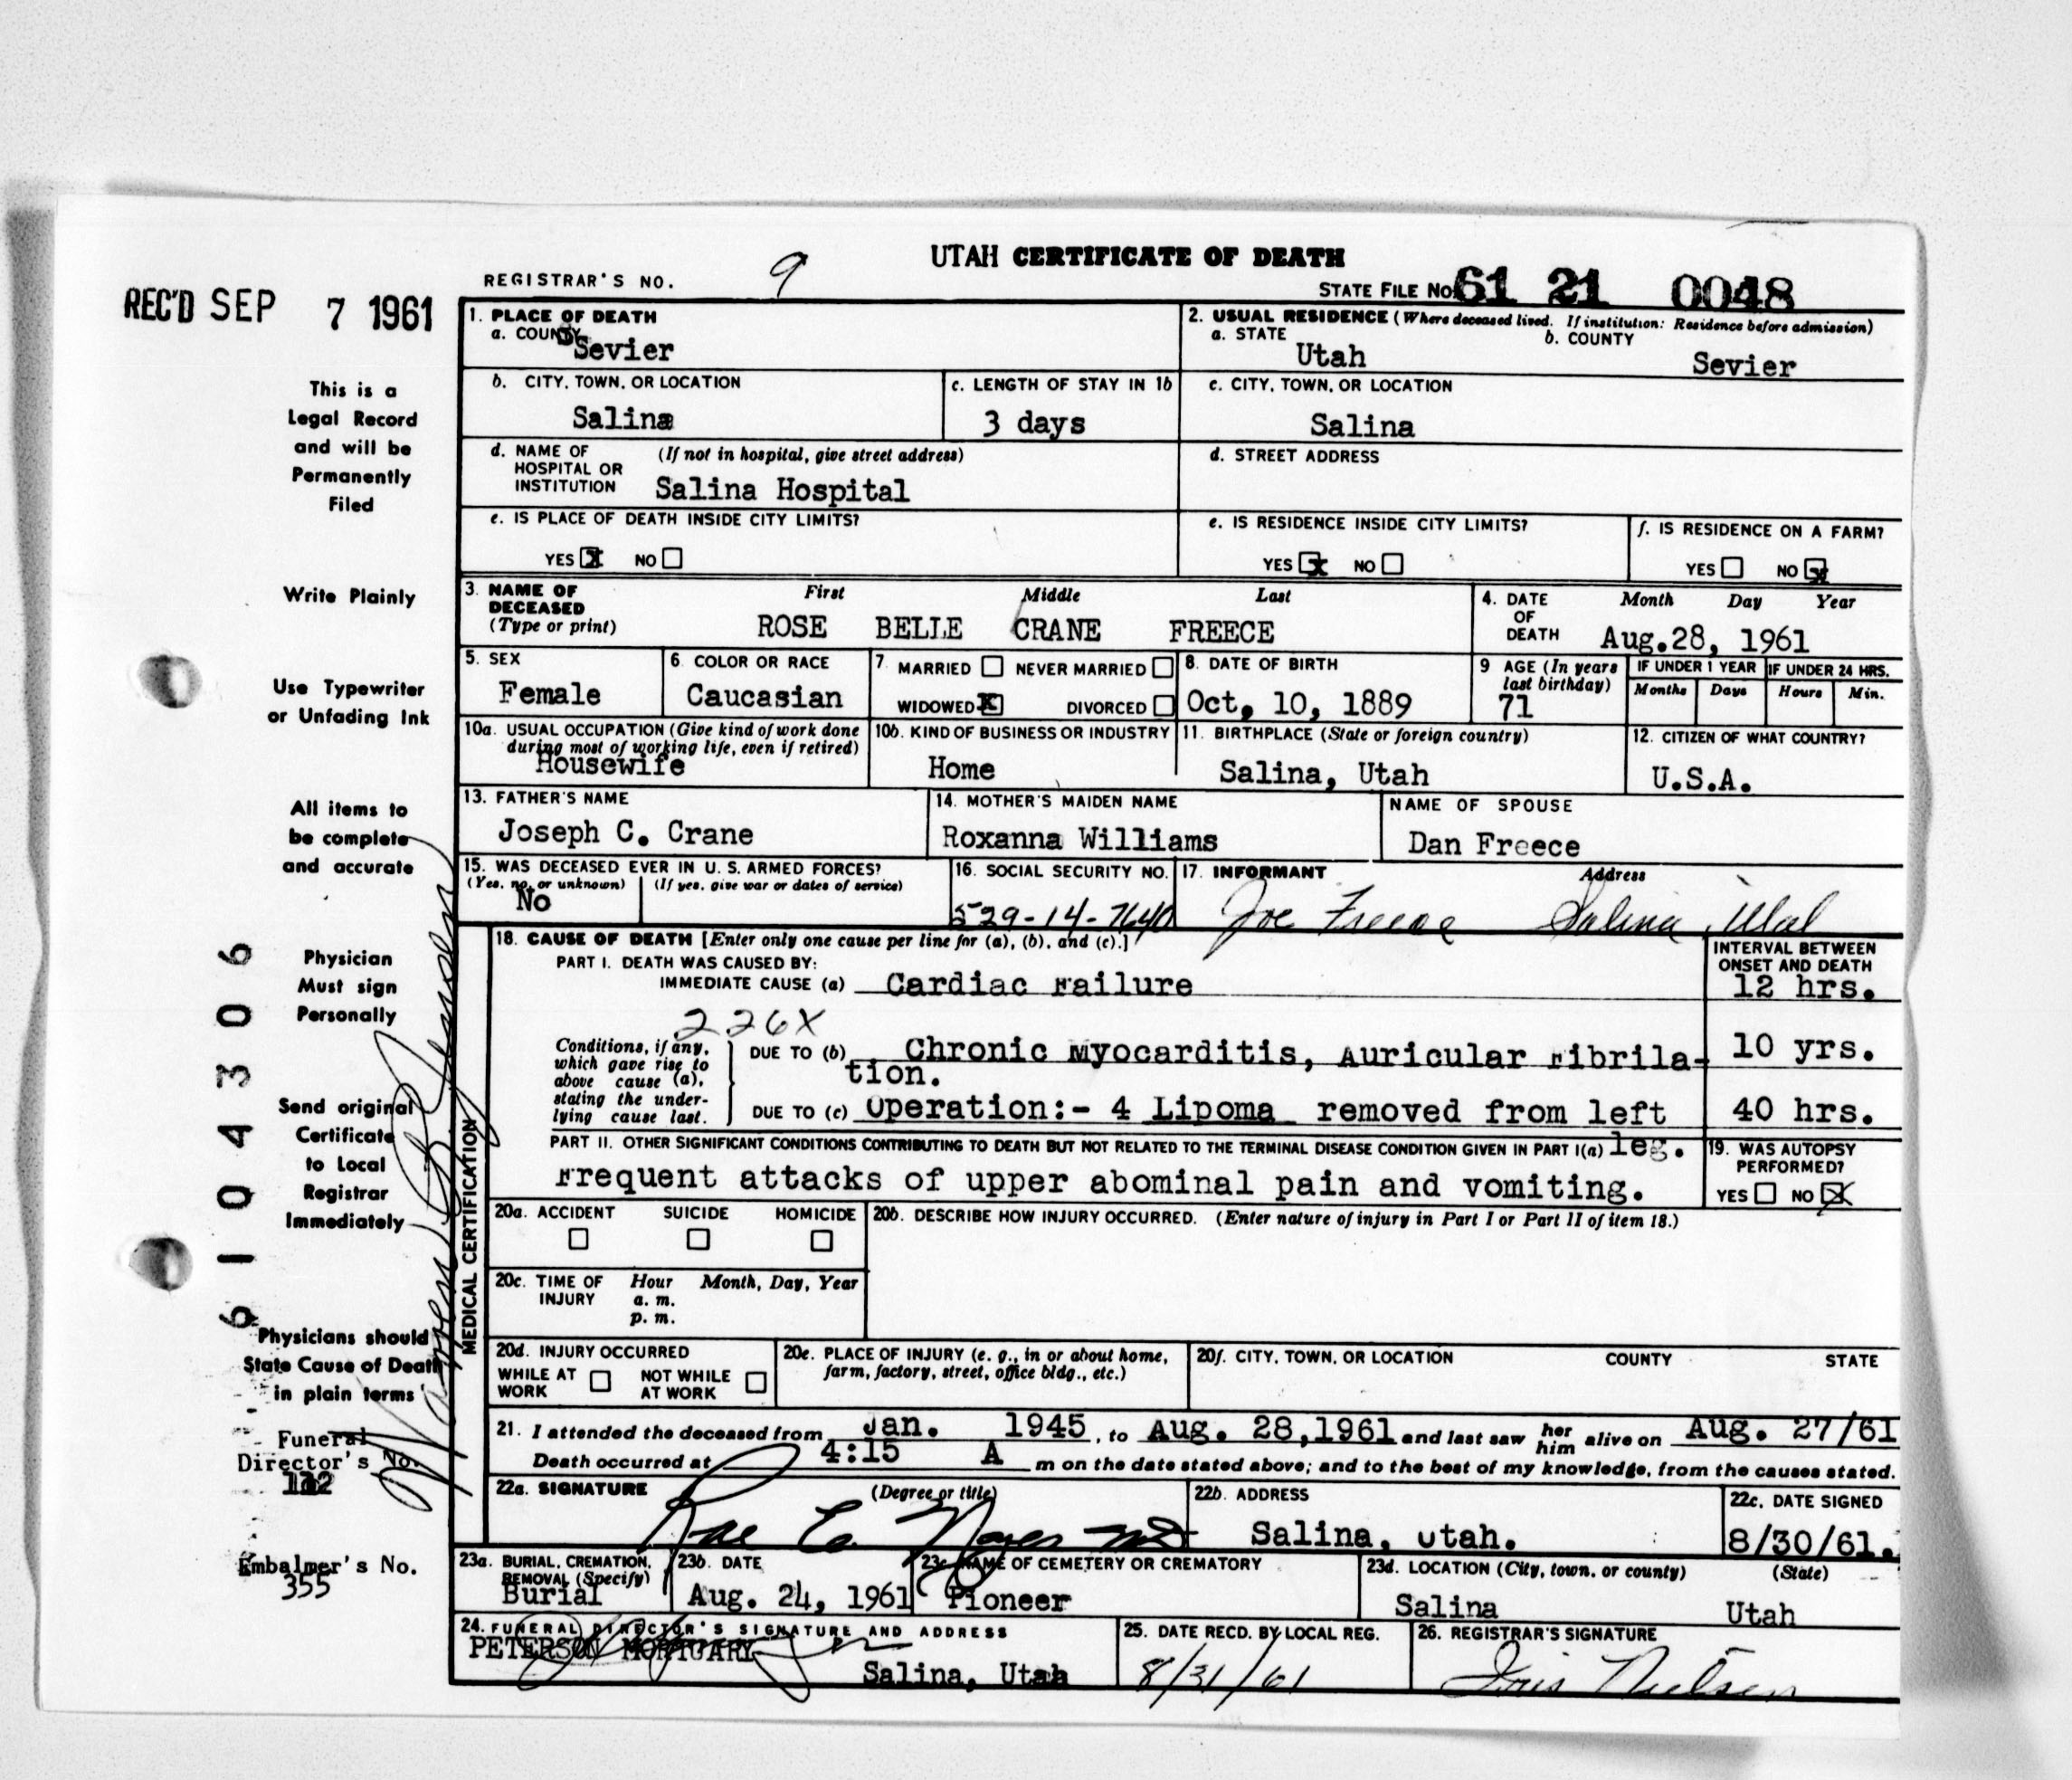 UTAH CERTIFICATE OF DEATH
REGISTRAR'S NO. 9
STATE FILE NO. 61 21 0048
REC'D SEP 7 1961
1. PLACE OF DEATH
a. COUNTY
Sevier
2. USUAL RESIDENCE (Where deceased lived. If institution: Residence before admission)
a. STATE Utah
b. COUNTY Sevier
b. CITY, TOWN, OR LOCATION
Salina
c. LENGTH OF STAY IN 1b
3 days
c. CITY, TOWN, OR LOCATION
Salina
d. NAME OF HOSPITAL OR INSTITUTION
(If not in hospital, give street address)
Salina Hospital
d. STREET ADDRESS
e. IS PLACE OF DEATH INSIDE CITY LIMITS?
YES X NO
e. IS RESIDENCE INSIDE CITY LIMITS?
YES X NO
f. IS RESIDENCE ON A FARM?
YES NO X
3. NAME OF DECEASED (Type or print)
First Middle Last
ROSE BELLE CRANE FREECE
4. DATE OF DEATH
Month Day Year
Aug.28, 1961
5. SEX
Female
6. COLOR OR RACE
Caucasian
7. MARRIED NEVER MARRIED
WIDOWED X DIVORCED
8. DATE OF BIRTH
Oct. 10, 1889
9 AGE (In years last birthday)
71
IF UNDER 1 YEAR
Months Days
IF UNDER 24 HRS.
Hours Min.
10a. USUAL OCCUPATION (Give kind of work done during most of working life, even if retired)
Housewife
10b. KIND OF BUSINESS OR INDUSTRY
Home
11. BIRTHPLACE (State or foreign country)
Salina, Utah
12. CITIZEN OF WHAT COUNTRY?
U.S.A.
13. FATHER'S NAME
Joseph C. Crane
14. MOTHER'S MAIDEN NAME
Roxanna Williams
NAME OF SPOUSE
Dan Freece
15. WAS DECEASED EVER IN U. S. ARMED FORCES?
(Yes, no, or unknown) (If yes, give war or dates of service)
No
16. SOCIAL SECURITY NO.
529-14-7640
17. INFORMANT Address
Joe Freece Salina, Utah
MEDICAL CERTIFICATION
18. CAUSE OF DEATH [Enter only one cause per line for (a), (b), and (c).]
INTERVAL BETWEEN ONSET AND DEATH
PART I. DEATH WAS CAUSED BY:
IMMEDIATE CAUSE (a) Cardiac Failure 12 hrs.
226X
Conditions, if any, which gave rise to above cause (a), stating the underlying cause last.
DUE TO (b) Chronic Myocarditis, Auricular Fibrila- 10 yrs.
tion.
DUE TO (c) Operation:- 4 Lipoma removed from left 40 hrs.
leg.
PART II. OTHER SIGNIFICANT CONDITIONS CONTRIBUTING TO DEATH BUT NOT RELATED TO THE TERMINAL DISEASE CONDITION GIVEN IN PART I(a)
Frequent attacks of upper abominal pain and vomiting.
19. WAS AUTOPSY PERFORMED?
YES NO X
20a. ACCIDENT SUICIDE HOMICIDE
20b. DESCRIBE HOW INJURY OCCURRED. (Enter nature of injury in Part I or Part II of item 18.)
20c. TIME OF INJURY
Hour Month, Day, Year
a. m.
p. m.
20d. INJURY OCCURRED
WHILE AT WORK NOT WHILE AT WORK
20e. PLACE OF INJURY (e. g., in or about home, farm, factory, street, office bldg., etc.)
20f. CITY, TOWN, OR LOCATION COUNTY STATE
21. I attended the deceased from Jan. 1945, to Aug. 28,1961 and last saw her him alive on Aug. 27/61
Death occurred at 4:15 A m on the date stated above; and to the best of my knowledge, from the causes stated.
22a. SIGNATURE (Degree or title)
Rae E. Noyes MD
22b. ADDRESS
Salina, Utah.
22c. DATE SIGNED
8/30/61.
23a. BURIAL, CREMATION, REMOVAL (Specify)
Burial
23b. DATE
Aug. 24, 1961
23c. NAME OF CEMETERY OR CREMATORY
Pioneer
23d. LOCATION (City, town, or county) (State)
Salina Utah
24. FUNERAL DIRECTOR'S SIGNATURE AND ADDRESS
PETERSON MORTUARY
Salina, Utah
25. DATE RECD. BY LOCAL REG.
8/31/61
26. REGISTRAR'S SIGNATURE
Iris Nielsen
This is a
Legal Record
and will be
Permanently
Filed
Write Plainly
Use Typewriter
or Unfading Ink
All items to
be complete
and accurate
Physician
Must sign
Personally
Send original
Certificate
to Local
Registrar
Immediately
Physicians should
State Cause of Death
in plain terms
Funeral
Director's No.
112
Embalmer's No.
355
6104306
Warren B. Jensen